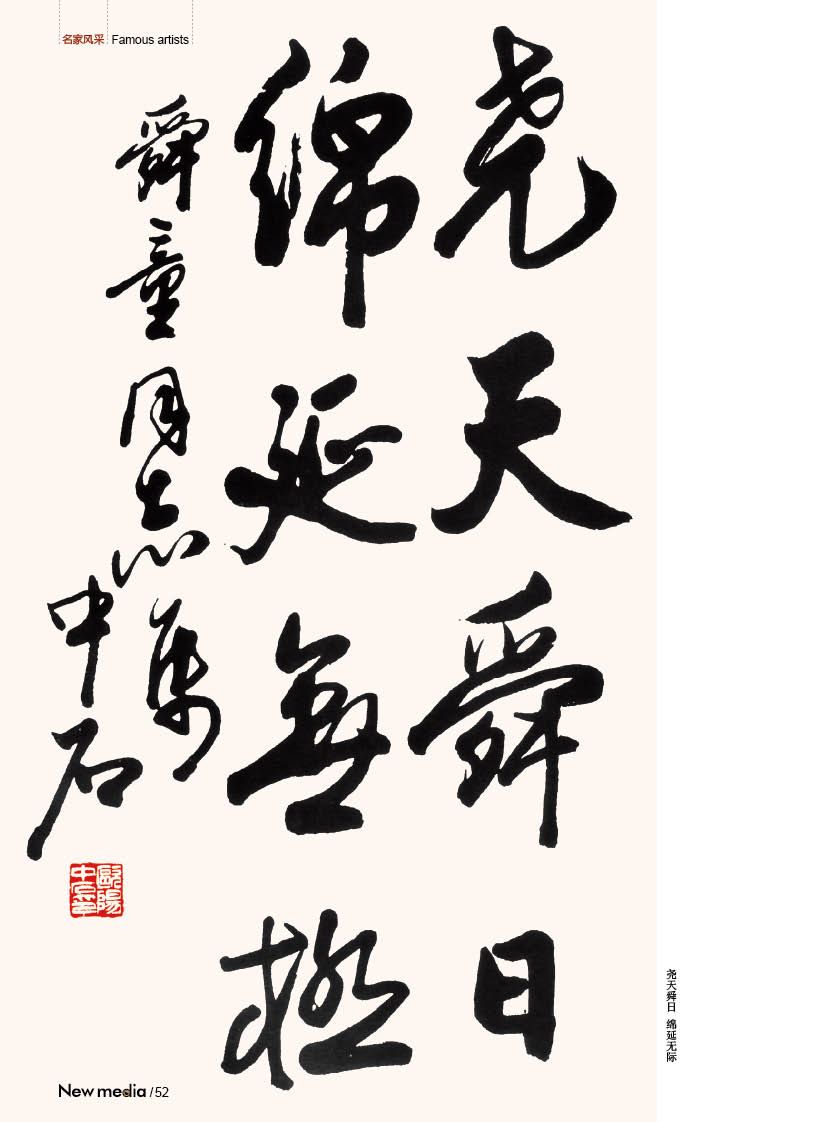 名家风采 Famous artists
尧天舜日
绵延無極
舜童同志属
中石
歐陽
中石
尧天舜日 绵延无际
New media /52